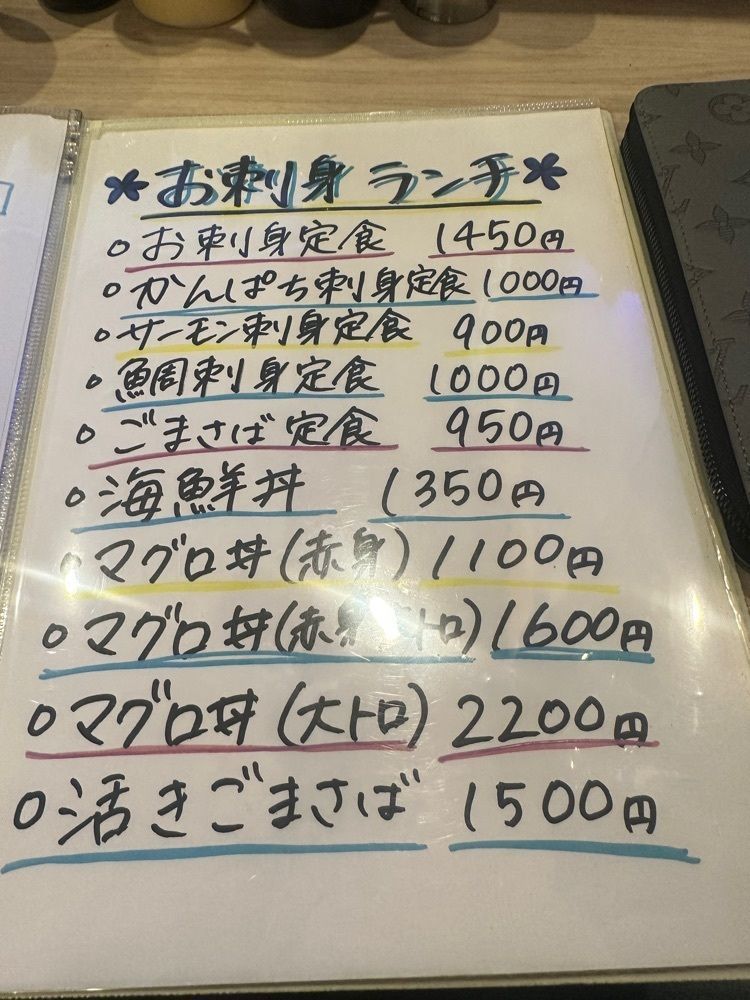 *お刺身 ランチ*
○お刺身定食 1450円
○かんぱち刺身定食 1000円
○サーモン刺身定食 900円
○鯛刺身定食 1000円
○ごまさば定食 950円
○海鮮丼 1350円
○マグロ丼(赤身) 1100円
○マグロ丼(赤身 トロ) 1600円
○マグロ丼(大トロ) 2200円
○活きごまさば 1500円